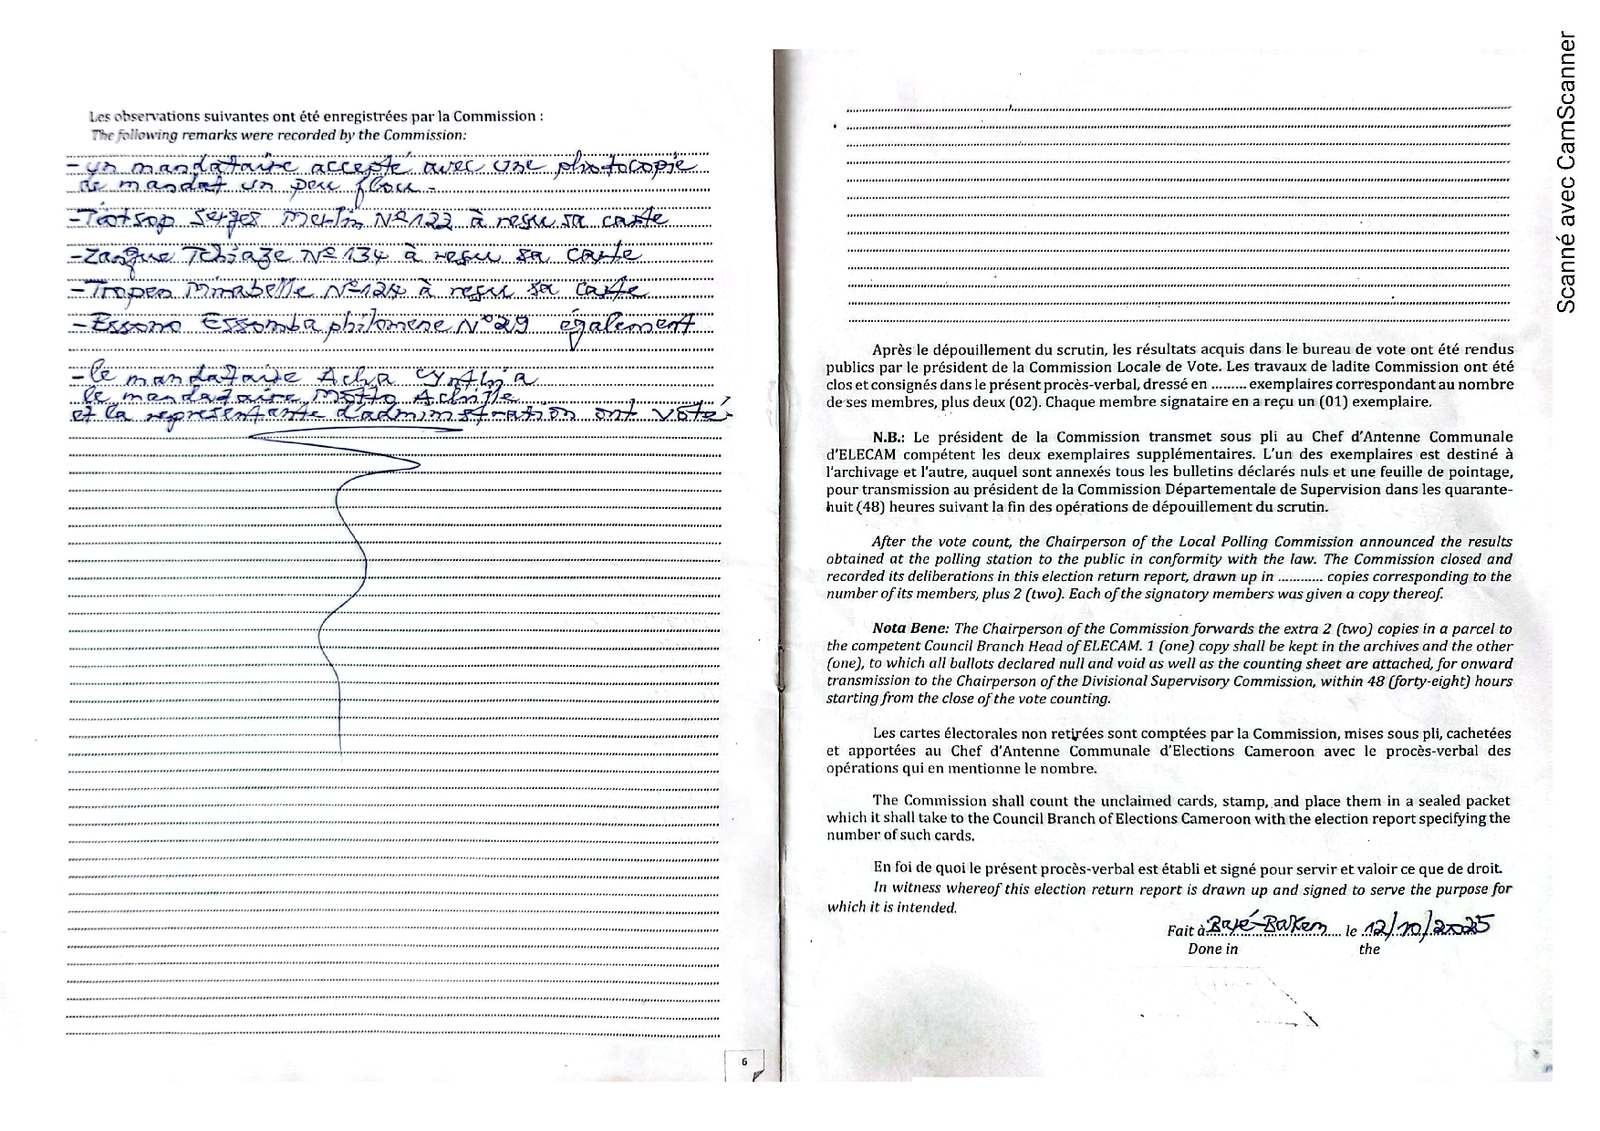 Les observations suivantes ont été enregistrées par la Commission :
The following remarks were recorded by the Commission:
- un mandataire accepté avec une photocopie
de mandat un peu flou -
- Tatsop Serges Merlin N°122 à reçu sa carte
- Zangue Tchiaze N° 134 à reçu sa carte
- Tropen Mirabelle N°124 à reçu sa carte
- Essono Essomba philomene N°29 également
- le mandataire Acha Cynthia
le mandataire Motto Achille
et la representante d'administration ont voté
6
Après le dépouillement du scrutin, les résultats acquis dans le bureau de vote ont été rendus
publics par le président de la Commission Locale de Vote. Les travaux de ladite Commission ont été
clos et consignés dans le présent procès-verbal, dressé en ......... exemplaires correspondant au nombre
de ses membres, plus deux (02). Chaque membre signataire en a reçu un (01) exemplaire.
N.B.: Le président de la Commission transmet sous pli au Chef d'Antenne Communale
d'ELECAM compétent les deux exemplaires supplémentaires. L'un des exemplaires est destiné à
l'archivage et l'autre, auquel sont annexés tous les bulletins déclarés nuls et une feuille de pointage,
pour transmission au président de la Commission Départementale de Supervision dans les quarante-
huit (48) heures suivant la fin des opérations de dépouillement du scrutin.
After the vote count, the Chairperson of the Local Polling Commission announced the results
obtained at the polling station to the public in conformity with the law. The Commission closed and
recorded its deliberations in this election return report, drawn up in ........... copies corresponding to the
number of its members, plus 2 (two). Each of the signatory members was given a copy thereof.
Nota Bene: The Chairperson of the Commission forwards the extra 2 (two) copies in a parcel to
the competent Council Branch Head of ELECAM. 1 (one) copy shall be kept in the archives and the other
(one), to which all ballots declared null and void as well as the counting sheet are attached, for onward
transmission to the Chairperson of the Divisional Supervisory Commission, within 48 (forty-eight) hours
starting from the close of the vote counting.
Les cartes électorales non retirées sont comptées par la Commission, mises sous pli, cachetées
et apportées au Chef d'Antenne Communale d'Elections Cameroon avec le procès-verbal des
opérations qui en mentionne le nombre.
The Commission shall count the unclaimed cards, stamp, and place them in a sealed packet
which it shall take to the Council Branch of Elections Cameroon with the election report specifying the
number of such cards.
En foi de quoi le présent procès-verbal est établi et signé pour servir et valoir ce que de droit.
In witness whereof this election return report is drawn up and signed to serve the purpose for
which it is intended.
Fait à Baré-Bakem le 12/10/2025
Done in the
Scanné avec CamScanner